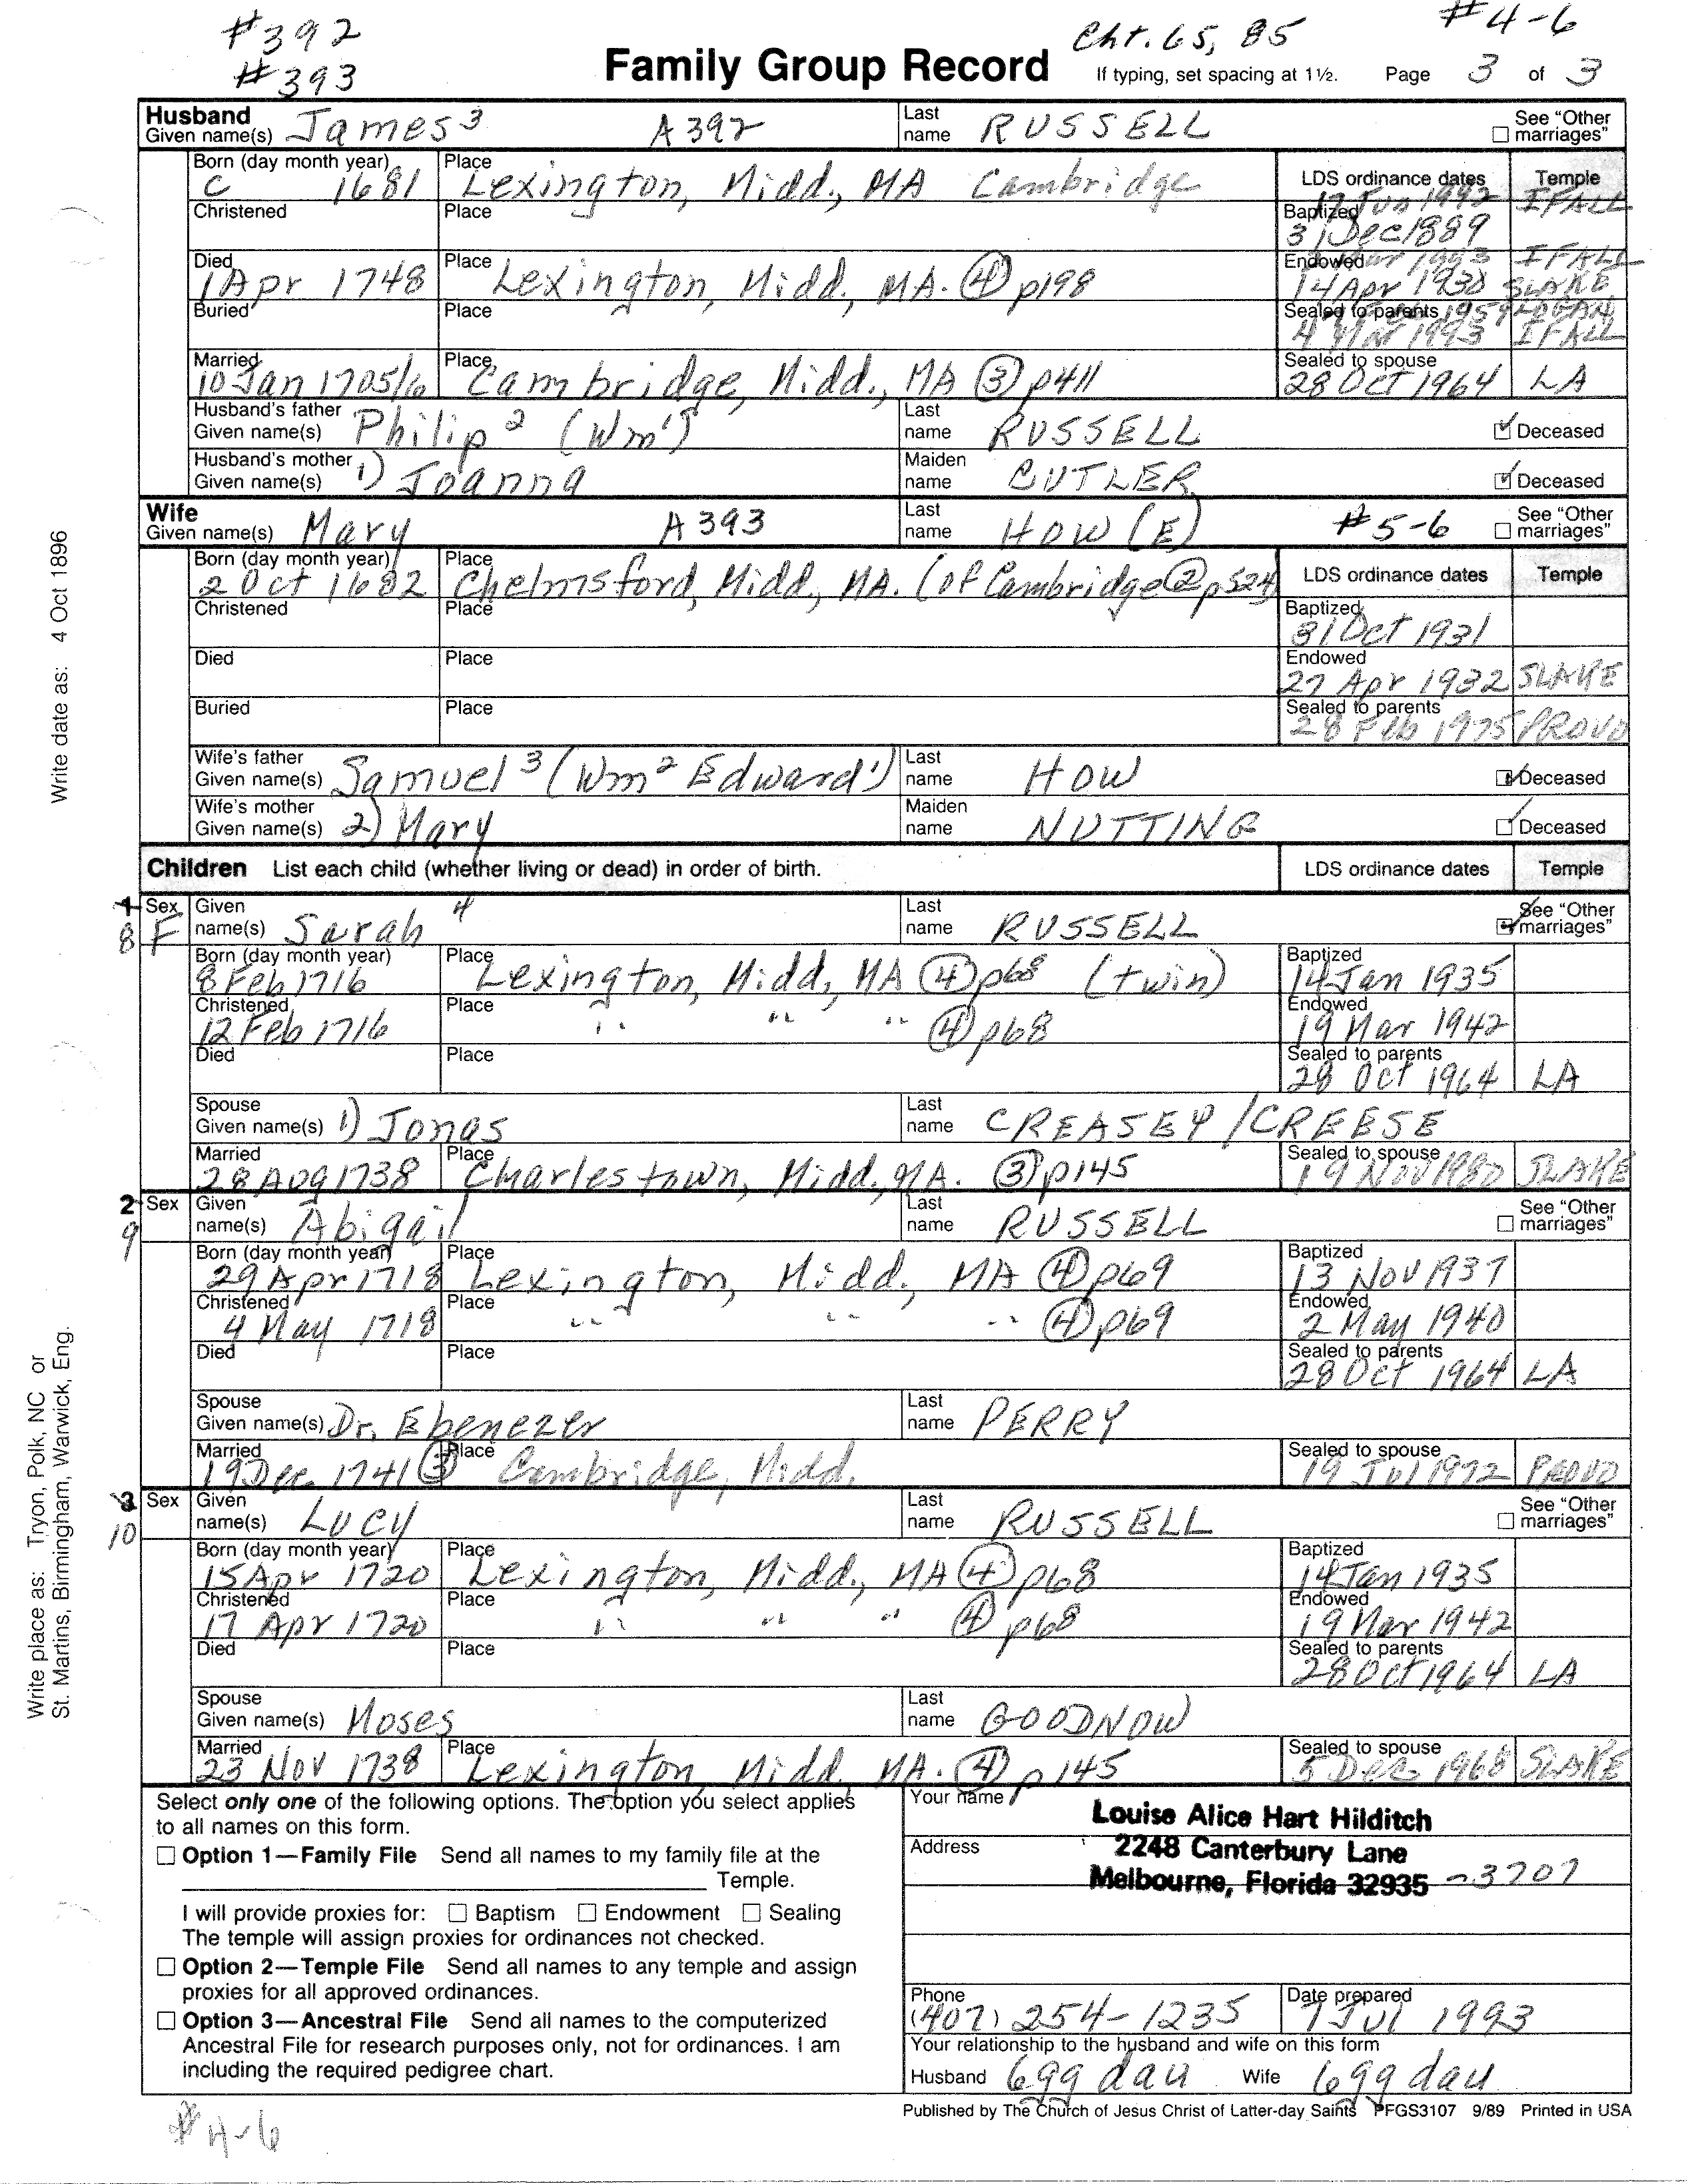 #392 Cht. 65, 85 #4-6
#393 Family Group Record If typing, set spacing at 1½. Page 3 of 3
Husband
Given name(s) James³ A392 Last name RUSSELL See "Other marriages"
Born (day month year) c 1681 Place Lexington, Midd., MA Cambridge LDS ordinance dates Temple
Christened Place Baptized 17 Jun 1992 IFALL
31 Dec 1889
Died 1 Apr 1748 Place Lexington, Midd., MA. ④ p198 Endowed 1993 IFALL
14 Apr 1930 SLAKE
Buried Place Sealed to parents 1957 LOGAN
4 Mar 1993 IFALL
Married 10 Jan 1705/6 Place Cambridge, Midd., MA ③ p411 Sealed to spouse 28 Oct 1964 LA
Husband's father Given name(s) Philip² (Wm¹) Last name RUSSELL Deceased
Husband's mother Given name(s) 1) Joanna Maiden name CUTLER Deceased
Wife
Given name(s) Mary A393 Last name HOW(E) #5-6 See "Other marriages"
Born (day month year) 2 Oct 1682 Place Chelmsford, Midd., MA. (of Cambridge ② p524) LDS ordinance dates Temple
Christened Place Baptized 31 Oct 1931
Died Place Endowed 27 Apr 1932 SLAKE
Buried Place Sealed to parents 28 Feb 1975 PROVO
Wife's father Given name(s) Samuel³ (Wm² Edward¹) Last name HOW Deceased
Wife's mother Given name(s) 2) Mary Maiden name NUTTING Deceased
Children List each child (whether living or dead) in order of birth. LDS ordinance dates Temple
1 8 Sex F Given name(s) Sarah⁴ Last name RUSSELL See "Other marriages"
Born (day month year) 8 Feb 1716 Place Lexington, Midd., MA ④ p68 (twin) Baptized 14 Jan 1935
Christened 12 Feb 1716 Place " " " ④ p68 Endowed 19 Mar 1942
Died Place Sealed to parents 28 Oct 1964 LA
Spouse Given name(s) 1) Jonas Last name CREASEY/CREESE
Married 28 Aug 1738 Place Charlestown, Midd., MA. ③ p145 Sealed to spouse 19 Nov 1980 SLAKE
2 9 Sex Given name(s) Abigail Last name RUSSELL See "Other marriages"
Born (day month year) 29 Apr 1718 Place Lexington, Midd., MA ④ p69 Baptized 13 Nov 1937
Christened 4 May 1718 Place " " " ④ p69 Endowed 2 May 1940
Died Place Sealed to parents 28 Oct 1964 LA
Spouse Given name(s) Dr. Ebenezer Last name PERRY
Married 19 Dec 1741 ③ Place Cambridge, Midd. Sealed to spouse 19 Jul 1972 PROVO
3 10 Sex Given name(s) Lucy Last name RUSSELL See "Other marriages"
Born (day month year) 15 Apr 1720 Place Lexington, Midd., MA ④ p68 Baptized 14 Jan 1935
Christened 17 Apr 1720 Place " " " ④ p68 Endowed 19 Mar 1942
Died Place Sealed to parents 28 Oct 1964 LA
Spouse Given name(s) Moses Last name GOODNOW
Married 23 Nov 1738 Place Lexington, Midd., MA. ④ p145 Sealed to spouse 5 Dec 1968 SLAKE
Select only one of the following options. The option you select applies
to all names on this form.
Option 1—Family File Send all names to my family file at the
Temple.
I will provide proxies for: Baptism Endowment Sealing
The temple will assign proxies for ordinances not checked.
Option 2—Temple File Send all names to any temple and assign
proxies for all approved ordinances.
Option 3—Ancestral File Send all names to the computerized
Ancestral File for research purposes only, not for ordinances. I am
including the required pedigree chart.
Your name Louise Alice Hart Hilditch
Address 2248 Canterbury Lane
Melbourne, Florida 32935 -3707
Phone (407) 254-1235 Date prepared 7 Jul 1993
Your relationship to the husband and wife on this form
Husband 6gg dau Wife 6gg dau
Published by The Church of Jesus Christ of Latter-day Saints PFGS3107 9/89 Printed in USA
#4-6
Write date as: 4 Oct 1896
Write place as: Tryon, Polk, NC or
St. Martins, Birmingham, Warwick, Eng.